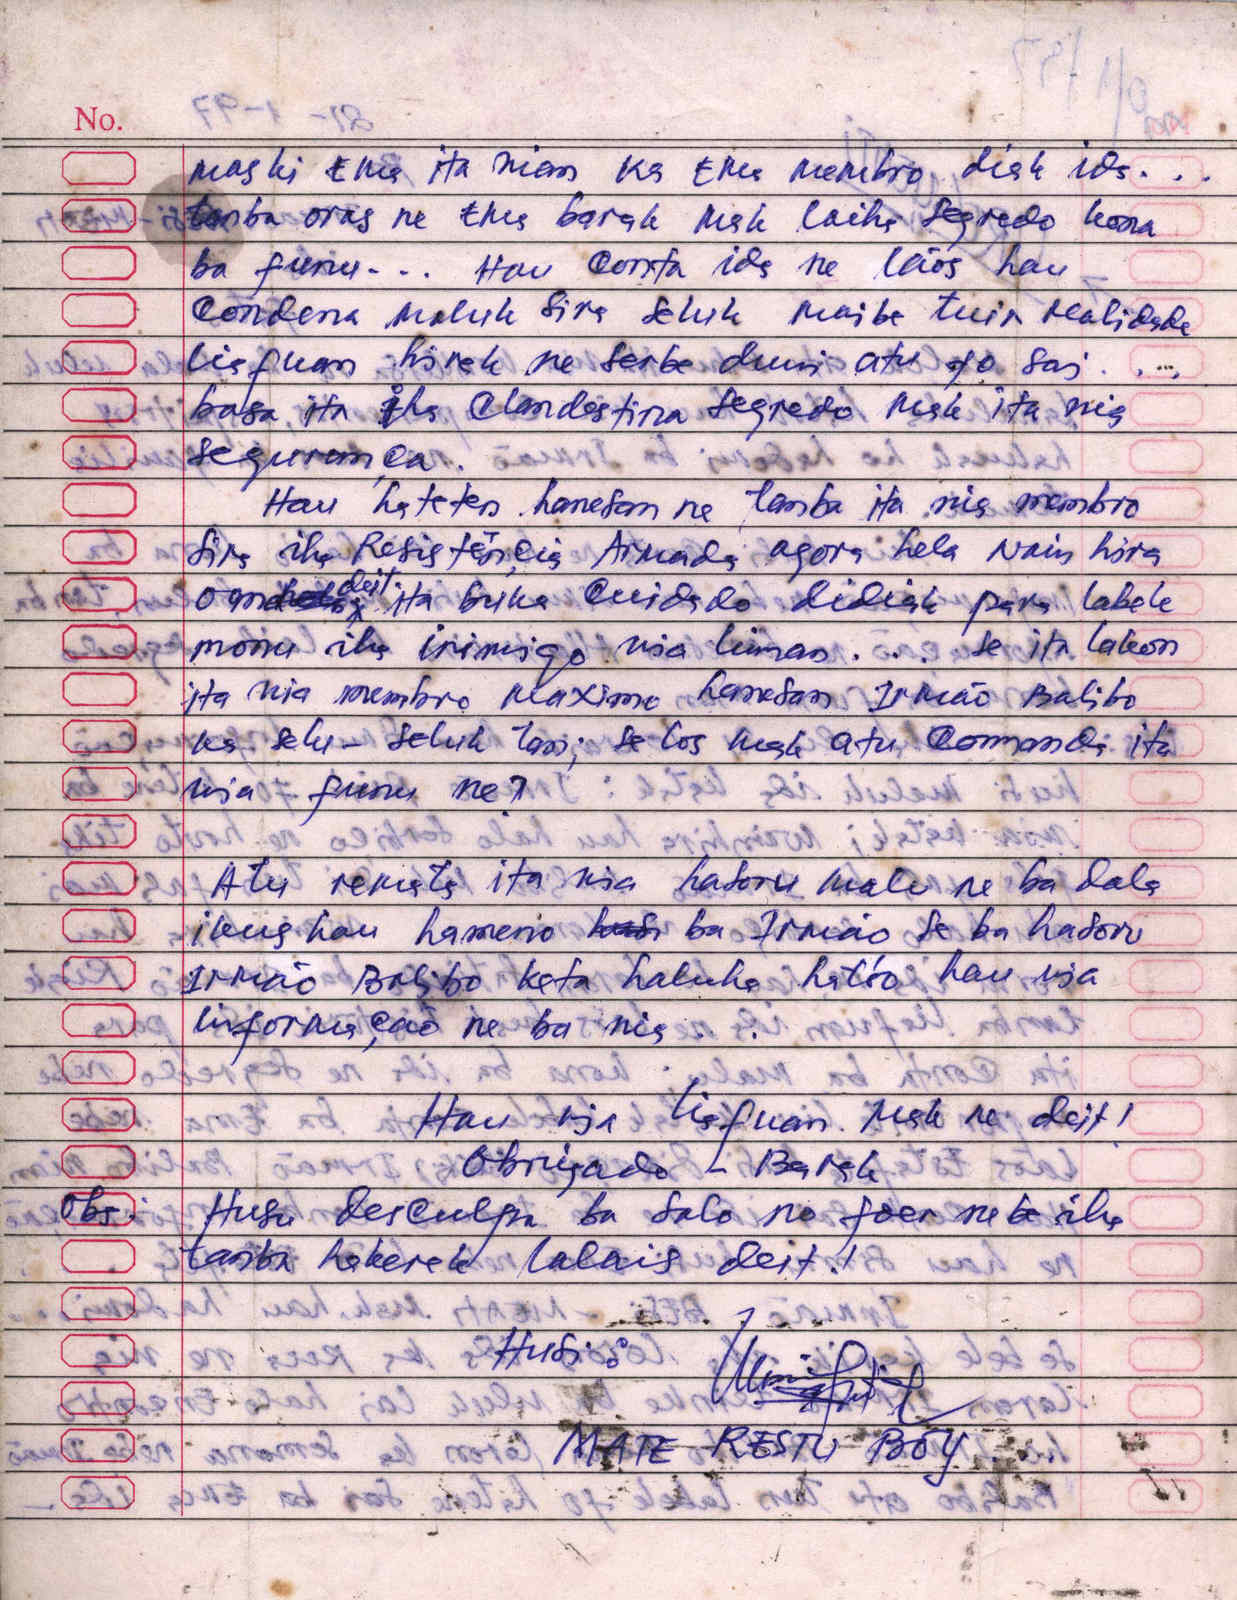 No.
maski Ema ita nian ka Ema membro diak ida...
tanba oras ne Ema barak mak laiha segredo kona
ba funu... Hau Conta ida ne laos hau
Condena maluk sira seluk maibe tuir realidade
liafuan hirak ne serbe duni atu fo sai....
basa ita iha Clandestina segredo mak ita nia
segurança.
Hau hateten hanesan ne tanba ita nia membro
sira iha Resistência Armada agora hela nain hira
oan deit ita buka Cuidado didiak para labele
monu iha inimigo nia liman.... se ita lakon
ita nia membro maximo hanesan Irmão Balibo
ka selu-seluk tan; se los mak atu Comanda ita
nia funu ne?
Atu remata ita nia hasoru malu ne ba dala
ikus hau hameno ba Irmão se ba hasoru
Irmão Balibo keta haluha hato'o hau nia
informação ne ba nia.
Hau nia liafuan mak ne deit!
Obrigado - Barak
Obs: Husu desculpa ba salo no foer nebe iha
tanba hakerek lalais deit.!
Husi:
MATE RESTU BOY